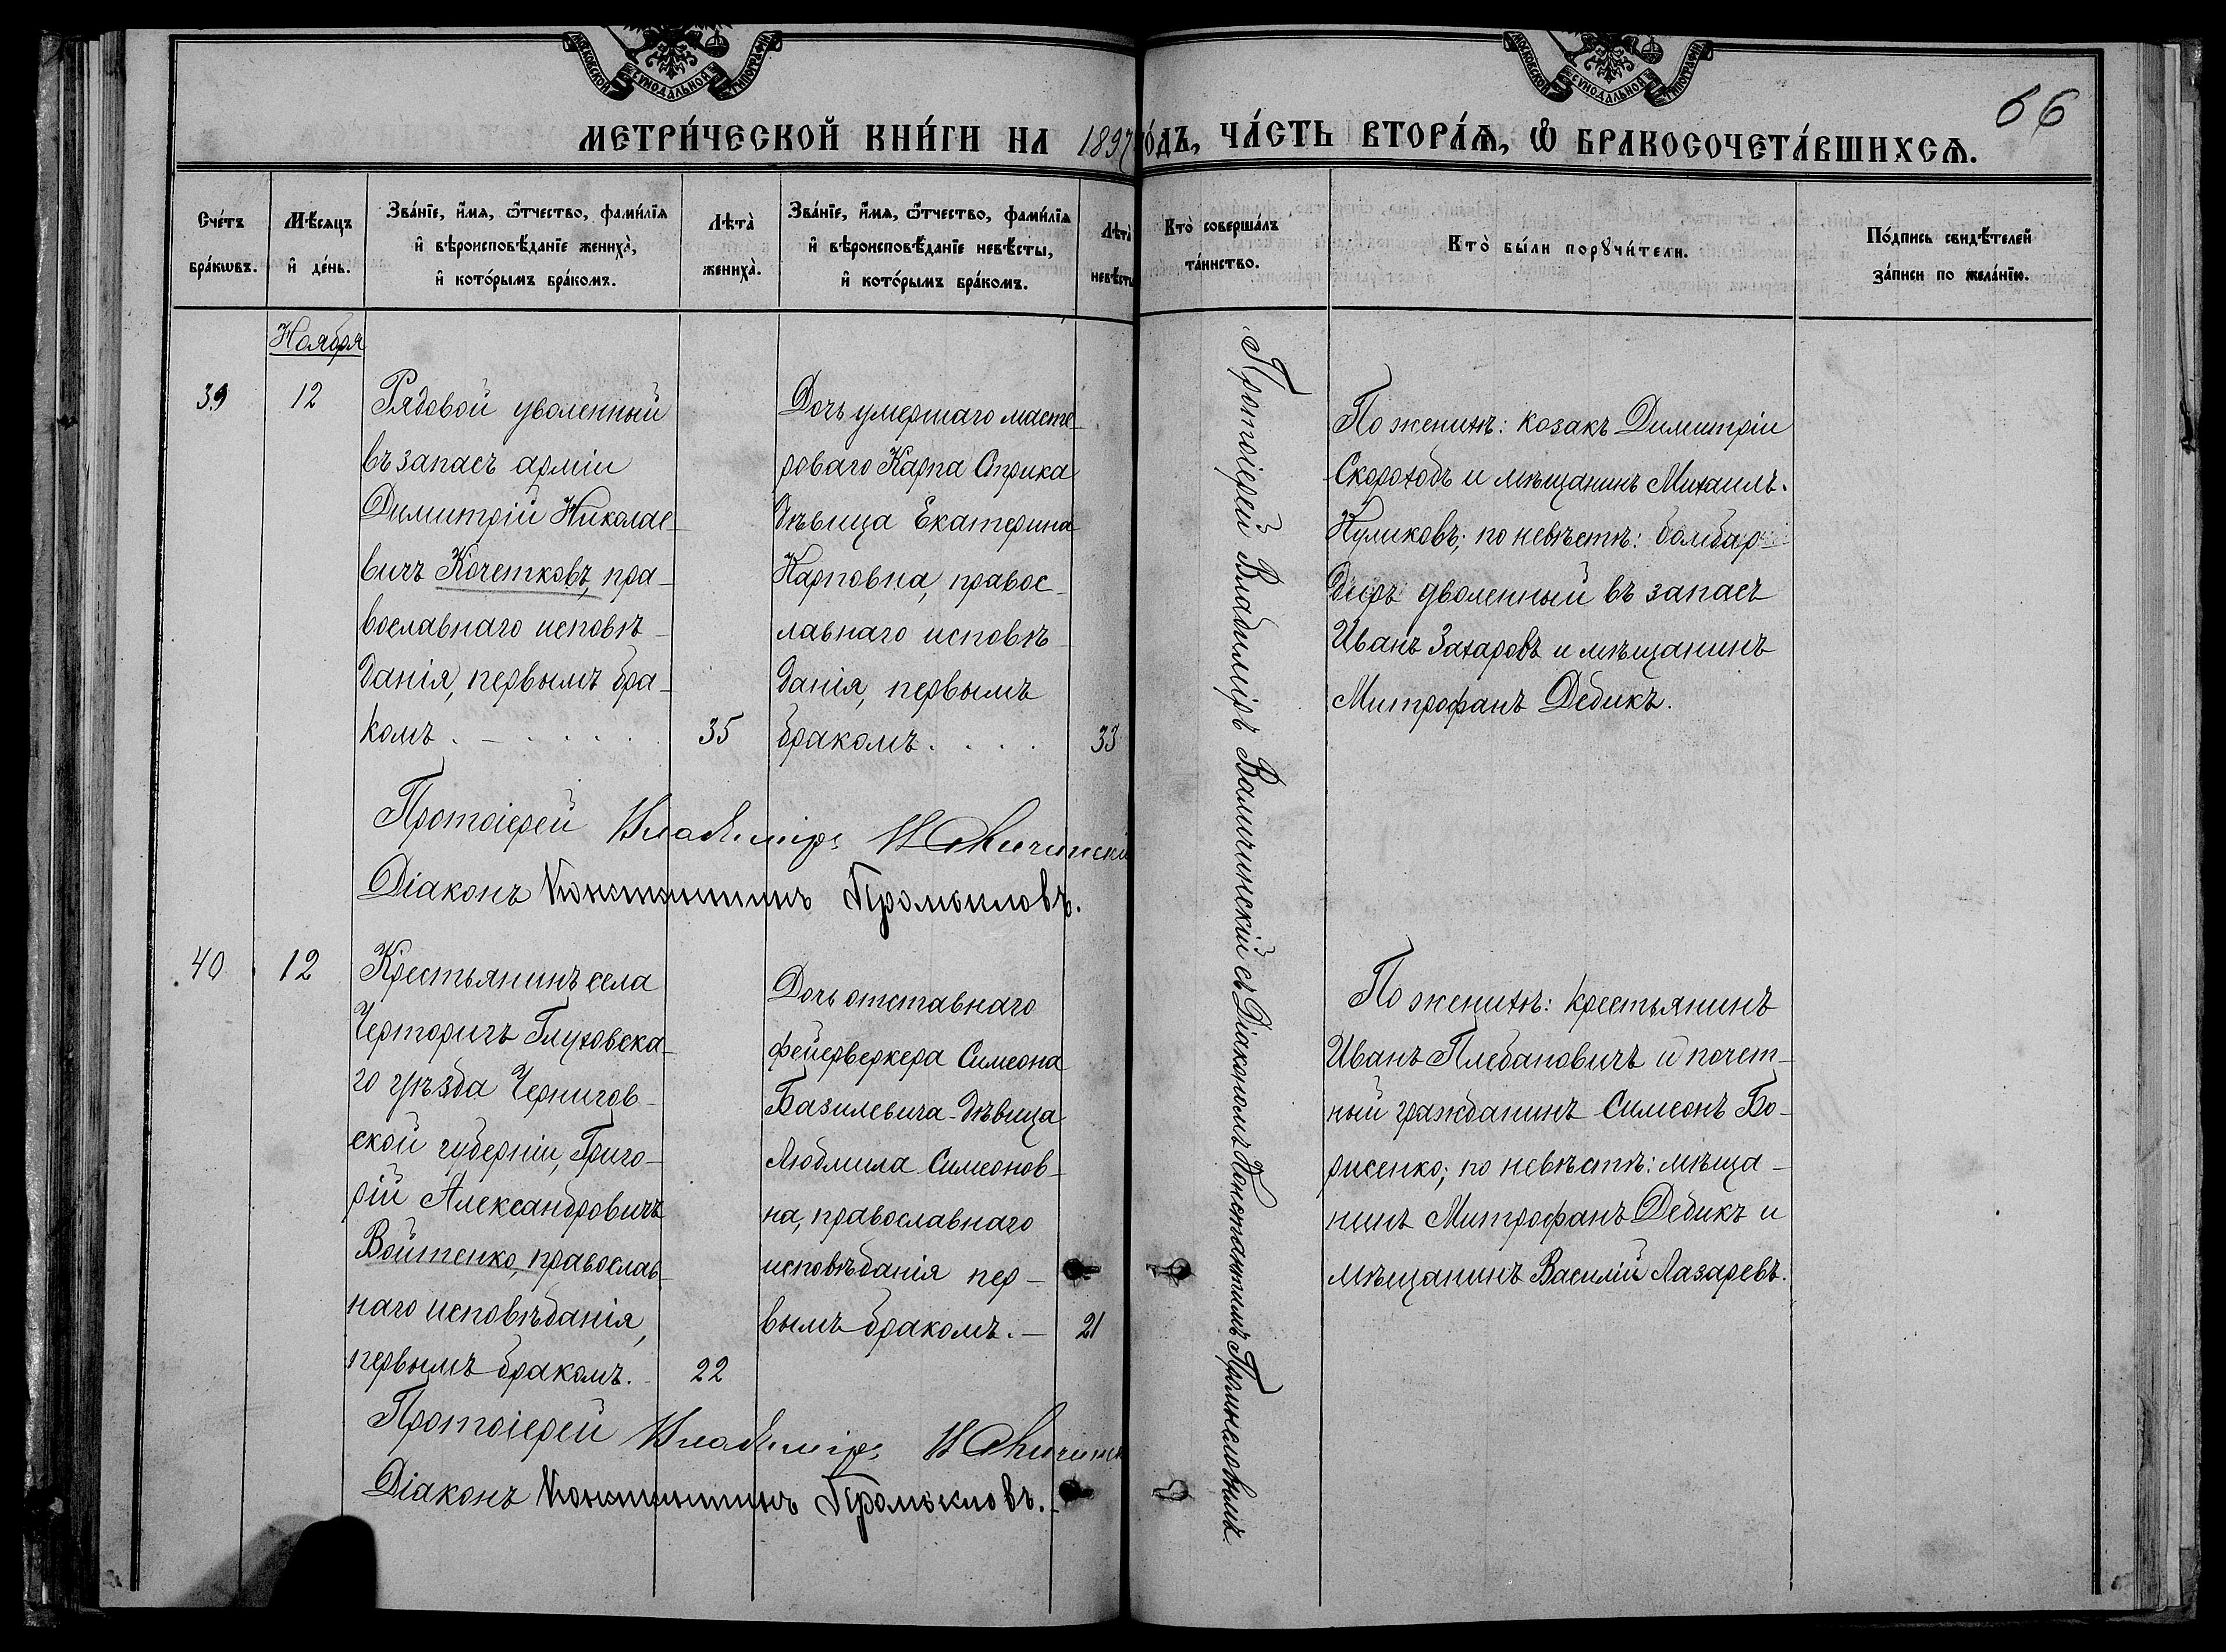 МОСКОВСКОЙ СѴНОДАЛЬНОЙ ТИПОГРАФІИ
МОСКОВСКОЙ СѴНОДАЛЬНОЙ ТИПОГРАФІИ
66
МЕТРИ́ЧЕСКОЙ КНИ́ГИ НА 1897 ГО́ДЪ, ЧА́СТЬ ВТОРА́Ѧ, Ѽ БРАКОСОЧЕТА́ВШИХСѦ.
Сче́тъ
бра́кѡвъ.
Мѣ́сѧцъ
и҆ де́нь.
Зва́нїе, и҆́мѧ, ѻ҆́тчество, фами́лїѧ
и҆ вѣроисповѣ́данїе жениха̀,
и҆ кото́рымъ бра́комъ.
Лѣта̀
жениха̀.
Зва́нїе, и҆́мѧ, ѻ҆́тчество, фами́лїѧ
и҆ вѣроисповѣ́данїе невѣ́сты,
и҆ кото́рымъ бра́комъ.
Лѣта̀
невѣ́сты
Кто̀ соверша́лъ
та́инство.
Кто̀ бы́ли порꙋчи́тели.
По́дпись свидѣ́телей
за́писи по жела́нїю.
Ноября
39
12
Рядовой уволенный
въ запасъ арміи
Димитрій Николае-
вичъ Кочетковъ, пра-
вославнаго исповѣ-
данія, первымъ бра-
комъ . - . . . . .
35
Дочь умершаго масте-
роваго Карпа Оприка
дѣвица Екатерина
Карповна, правос-
лавнаго исповѣ-
данія, первымъ
бракомъ . . . .
33
Протоіерей Владиміръ Валичинскій съ Діакономъ Константиномъ Промысловымъ.
По женихѣ: козакъ Димитрій
Скороходъ и мѣщанинъ Михаилъ
Куликовъ; по невѣстѣ: бомбар-
диръ уволенный въ запасъ
Иванъ Захаровъ и мѣщанинъ
Митрофанъ Дебикъ.
Протоіерей Владиміръ
Діаконъ Константинъ Промысловъ.
40
12
Крестьянинъ села
Черторигъ Глуховска-
го уѣзда Чернигов-
ской губерніи, Григо-
рій Александровичъ
Войтенко, православ-
наго исповѣданія,
первымъ бракомъ. -
22
Дочь отставнаго
фейерверкера Симеона
Базилевича - дѣвица
Людмила Симеонов-
на, православнаго
исповѣданія пер-
вымъ бракомъ. -
21
По женихѣ: крестьянинъ
Иванъ Плебановичъ и почет-
ный гражданинъ Симеонъ Бо-
рисенко; по невѣстѣ: мѣща-
нинъ Митрофанъ Дебикъ и
мѣщанинъ Василій Лазаревъ.
Протоіерей Владиміръ
Діаконъ Константинъ Промысловъ. -